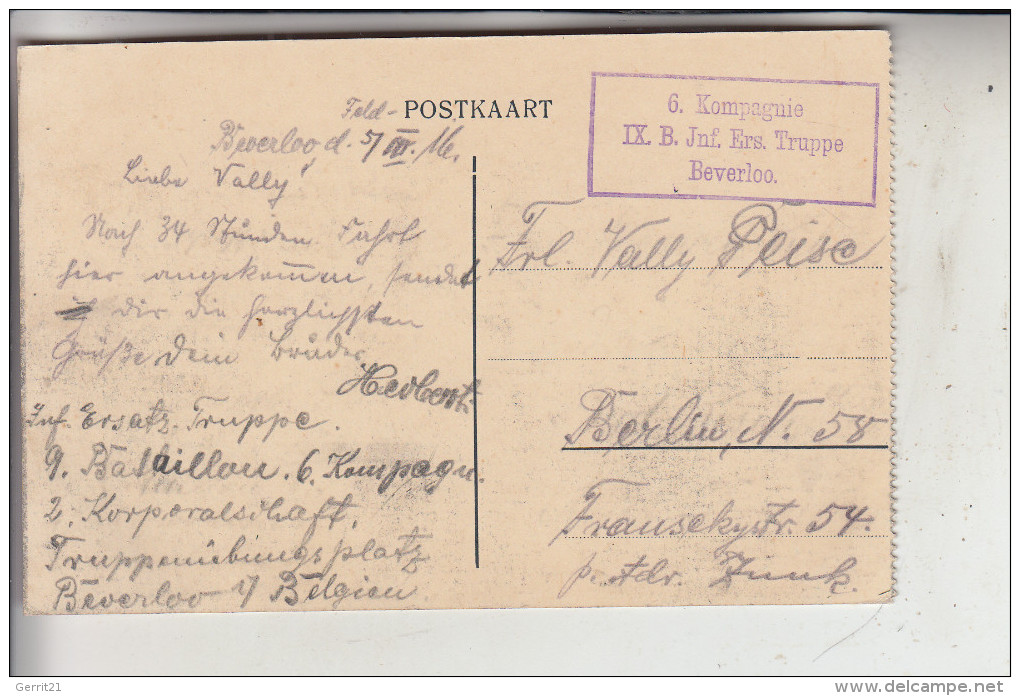 Feld-POSTKAART
Beverloo d. 5/III. 16.
Liebe Vally!
Nach 34 Stunden Fahrt
hier angekommen, sendet
dir die herzlichsten
Grüße dein Bruder
Herbert.
Inf. Ersatz-Truppe.
9. Bataillon. 6. Kompagn.
2. Korporalschaft,
Truppenübungsplatz
Beverloo i/ Belgien.
6. Kompagnie
IX. B. Jnf. Ers. Truppe
Beverloo.
Frl. Vally Peise
Berlin, N. 58
Franseckystr. 54.
pr. Adr. Zunk.
Gerrit21
delcampe.net